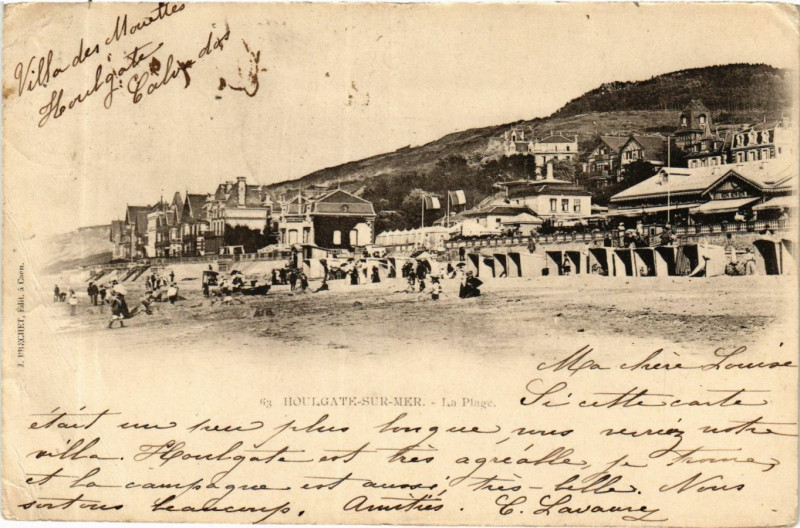 Villa des Mouettes
Houlgate
Calvados
J. BRÉCHET, Édit. à Caen.
63 HOULGATE-SUR-MER. - La Plage.
Ma chère Louise
Si cette carte
était un peu plus longue, vous verriez notre
villa. Houlgate est très agréable, je trouve,
et la campagne est aussi, très-belle. Nous
sortons beaucoup. Amitiés. E.